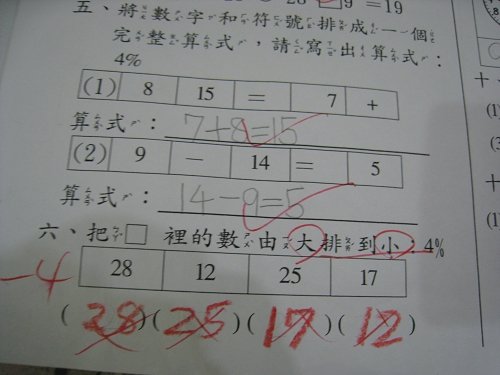 =19
五、將數字和符號排成一個
完整算式，請寫出算式：
4%
(1) 8 15 = 7 +
算式：7+8=15
(2) 9 － 14 = 5
算式：14－9=5
六、把□裡的數由大排到小：4%
－4
28 12 25 17
(28)(25)(17)(12)
十、
(1)
十
(1)